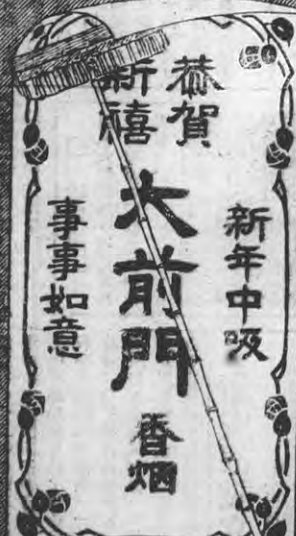 恭賀
新禧
新年中吸
大前門
香烟
事事如意